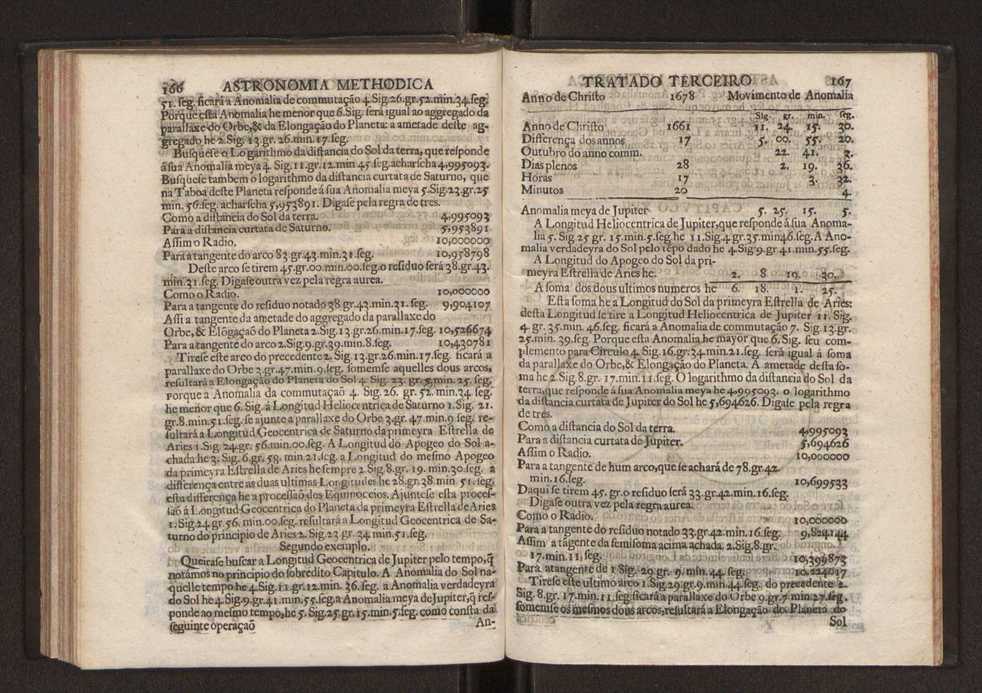 166 ASTRONOMIA METHODICA
51. seg. ficará a Anomalia de commutação 4. Sig. 26. gr. 52. min. 34. seg.
Porque esta Anomalia he menor que 6. Sig. será igual ao aggregado da
parallaxe do Orbe, & da Elongação do Planeta: a ametade deste ag-
gregado he 2. Sig. 13. gr. 26. min. 17. seg.
Busquese o Logarithmo da distancia do Sol da terra, que responde
á sua Anomalia meya 4. Sig. 11. gr. 12. min. 45. seg. acharseha 4,995093.
Busquese tambem o logarithmo da distancia curtata de Saturno, que
na Taboa deste Planeta responde á sua Anomalia meya 5. Sig. 23. gr. 25
min. 56. seg. acharseha 5,953891. Digase pela regra de tres.
Como a distancia do Sol da terra. 4,995093
Para a distancia curtata de Saturno. 5,953891
Assim o Radio. 10,000000
Para a tangente do arco 83. gr. 43. min. 31. seg. 10,958798
Deste arco se tirem 45. gr. 00. min. 00. seg. o residuo será 38. gr. 43.
min. 31. seg. Digase outra vez pela regra aurea.
Como o Radio. 10,000000
Para a tangente do residuo notado 38. gr. 43. min. 31. seg. 9,904107
Assi a tangente da ametade do aggregado da parallaxe do
Orbe, & Elõgaçaõ do Planeta 2. Sig. 13. gr. 26. min. 17. seg. 10,526674
Para a tangente do arco 2. Sig. 9. gr. 39. min. 8. seg. 10,430781
Tirese este arco do precedente 2. Sig. 13. gr. 26. min. 17. seg. ficará a
parallaxe do Orbe 3. gr. 47. min. 9. seg. somemse aquelles dous arcos,
resultará a Elongação do Planeta do Sol 4. Sig. 23. gr. 5. min. 25. seg.
Porque a Anomalia da commutação 4. Sig. 26. gr. 52. min. 34. seg.
he menor que 6. Sig. á Longitud Heliocentrica de Saturno 1. Sig. 21.
gr. 8. min. 51. seg. se ajunte a parallaxe do Orbe 3. gr. 47. min. 9. seg. re-
sultará a Longitud Geocentrica de Saturno da primeyra Estrella de
Aries 1. Sig. 24. gr. 56. min. 00. seg. A Longitud do Apogeo do Sol a-
chada he 3. Sig. 6. gr. 58. min. 21. seg. a Longitud do mesmo Apogeo
da primeyra Estrella de Aries he sempre 2. Sig. 8. gr. 19. min. 30. seg. a
differença entre as duas ultimas Longitudes he 28. gr. 38. min. 51. seg.
esta differença he a processaõ dos Equinoccios. Ajuntese esta proces-
saõ á Longitud Geocentrica do Planeta da primeyra Estrella de Aries
1. Sig. 24. gr. 56. min. 00. seg. resultará a Longitud Geocentrica de Sa-
turno do principio de Aries 2. Sig. 23. gr. 34. min. 51. seg.
Segundo exemplo.
Queirase buscar a Longitud Geocentrica de Jupiter pelo tempo, q̃
notámos no principio do sobredito Capitulo. A Anomalia do Sol na-
quelle tempo he 4. Sig. 11. gr. 12. min. 36. seg. a Anomalia verdadeyra
do Sol he 4. Sig. 9. gr. 41. min. 55. seg. a Anomalia meya de Jupiter, q̃ res-
ponde ao mesmo tempo, he 5. Sig. 25. gr. 15. min. 5. seg. como consta da
seguinte operaçaõ
An-
TRATADO TERCEIRO 167
Anno de Christo 1678 Movimento de Anomalia
Sig. gr. min. seg.
Anno de Christo 1661 11. 24. 15. 30.
Differença dos annos 17 5. 00. 55. 20.
Outubro do anno comm. 22. 41. 3.
Dias plenos 28 2. 19. 36.
Horas 17 3. 32.
Minutos 20 4.
Anomalia meya de Jupiter 5. 25. 15. 5.
A Longitud Heliocentrica de Jupiter, que responde á sua Anoma-
lia 5. Sig. 25 gr. 15. min. 5. seg. he 11. Sig. 4. gr. 35. min 46. seg. A Ano-
malia verdadeyra do Sol pelo tẽpo dado he 4. Sig. 9. gr. 41. min. 55. seg.
A Longitud do Apogeo do Sol da pri-
meyra Estrella de Aries he. 2. 8 19. 30.
A soma dos dous ultimos numeros he 6. 18. 1. 25.
Esta soma he a Longitud do Sol da primeyra Estrella de Aries:
desta Longitud se tire a Longitud Heliocentrica de Jupiter 11. Sig.
4. gr. 35. min. 46. seg. ficará a Anomalia de commutação 7. Sig. 13. gr.
25. min. 39. seg. Porque esta Anomalia he mayor que 6. Sig. seu com-
plemento para Circulo 4. Sig. 16. gr. 34. min. 21. seg. será igual á soma
da parallaxe do Orbe, & Elongação do Planeta. A ametade desta so-
ma he 2. Sig. 8. gr. 17. min. 11. seg. O logarithmo da distancia do Sol da
terra, que responde á sua Anomalia meya he 4,995093. o logarithmo
da distancia curtata de Jupiter do Sol he 5,694626. Digase pela regra
de tres.
Como a distancia do Sol da terra. 4,995093
Para a distancia curtata de Jupiter. 5,694626
Assim o Radio. 10,000000
Para a tangente de hum arco, que se achará de 78. gr. 42.
min. 16. seg. 10,699533
Daqui se tirem 45. gr. o residuo será 33. gr. 42. min. 16. seg.
Digase outra vez pela regra aurea.
Como o Radio. 10,000000
Para a tangente do residuo notado 33. gr. 42. min. 16. seg. 9,824144
Assim a tãgente da semisoma acima achada 2. Sig. 8. gr.
17. min. 11. seg. 10,399873
Para a tangente de 1. Sig. 29. gr. 9. min. 44. seg. 10,224017
Tirese este ultimo arco 1. Sig. 29. gr. 9. min. 44. seg. do precedente 2.
Sig. 8. gr. 17. min. 11. seg. ficará a parallaxe do Orbe 9. gr. 7. min 27. seg.
somemse os mesmos dous arcos, resultará a Elongação do Planeta do
Sol